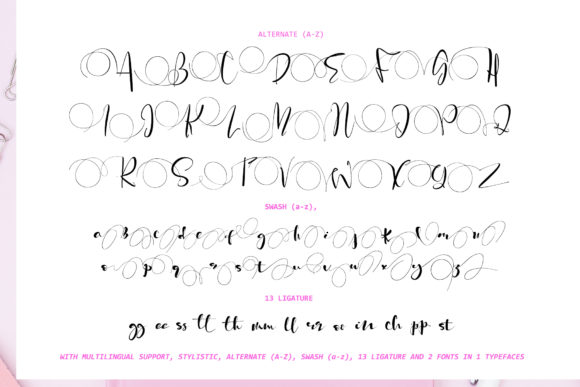 ALTERNATE (A-Z)
A B C D E F G H
I J K L M N O P Q
R S T U V W X Y Z
SWASH (a-z),
a b c d e f g h i j k l m n
o p q r s t u v w x y z
13 LIGATURE
gg ee ss tt th mm ll rr oo in ch pp st
WITH MULTILINGUAL SUPPORT, STYLISTIC, ALTERNATE (A-Z), SWASH (a-z), 13 LIGATURE AND 2 FONTS IN 1 TYPEFACES